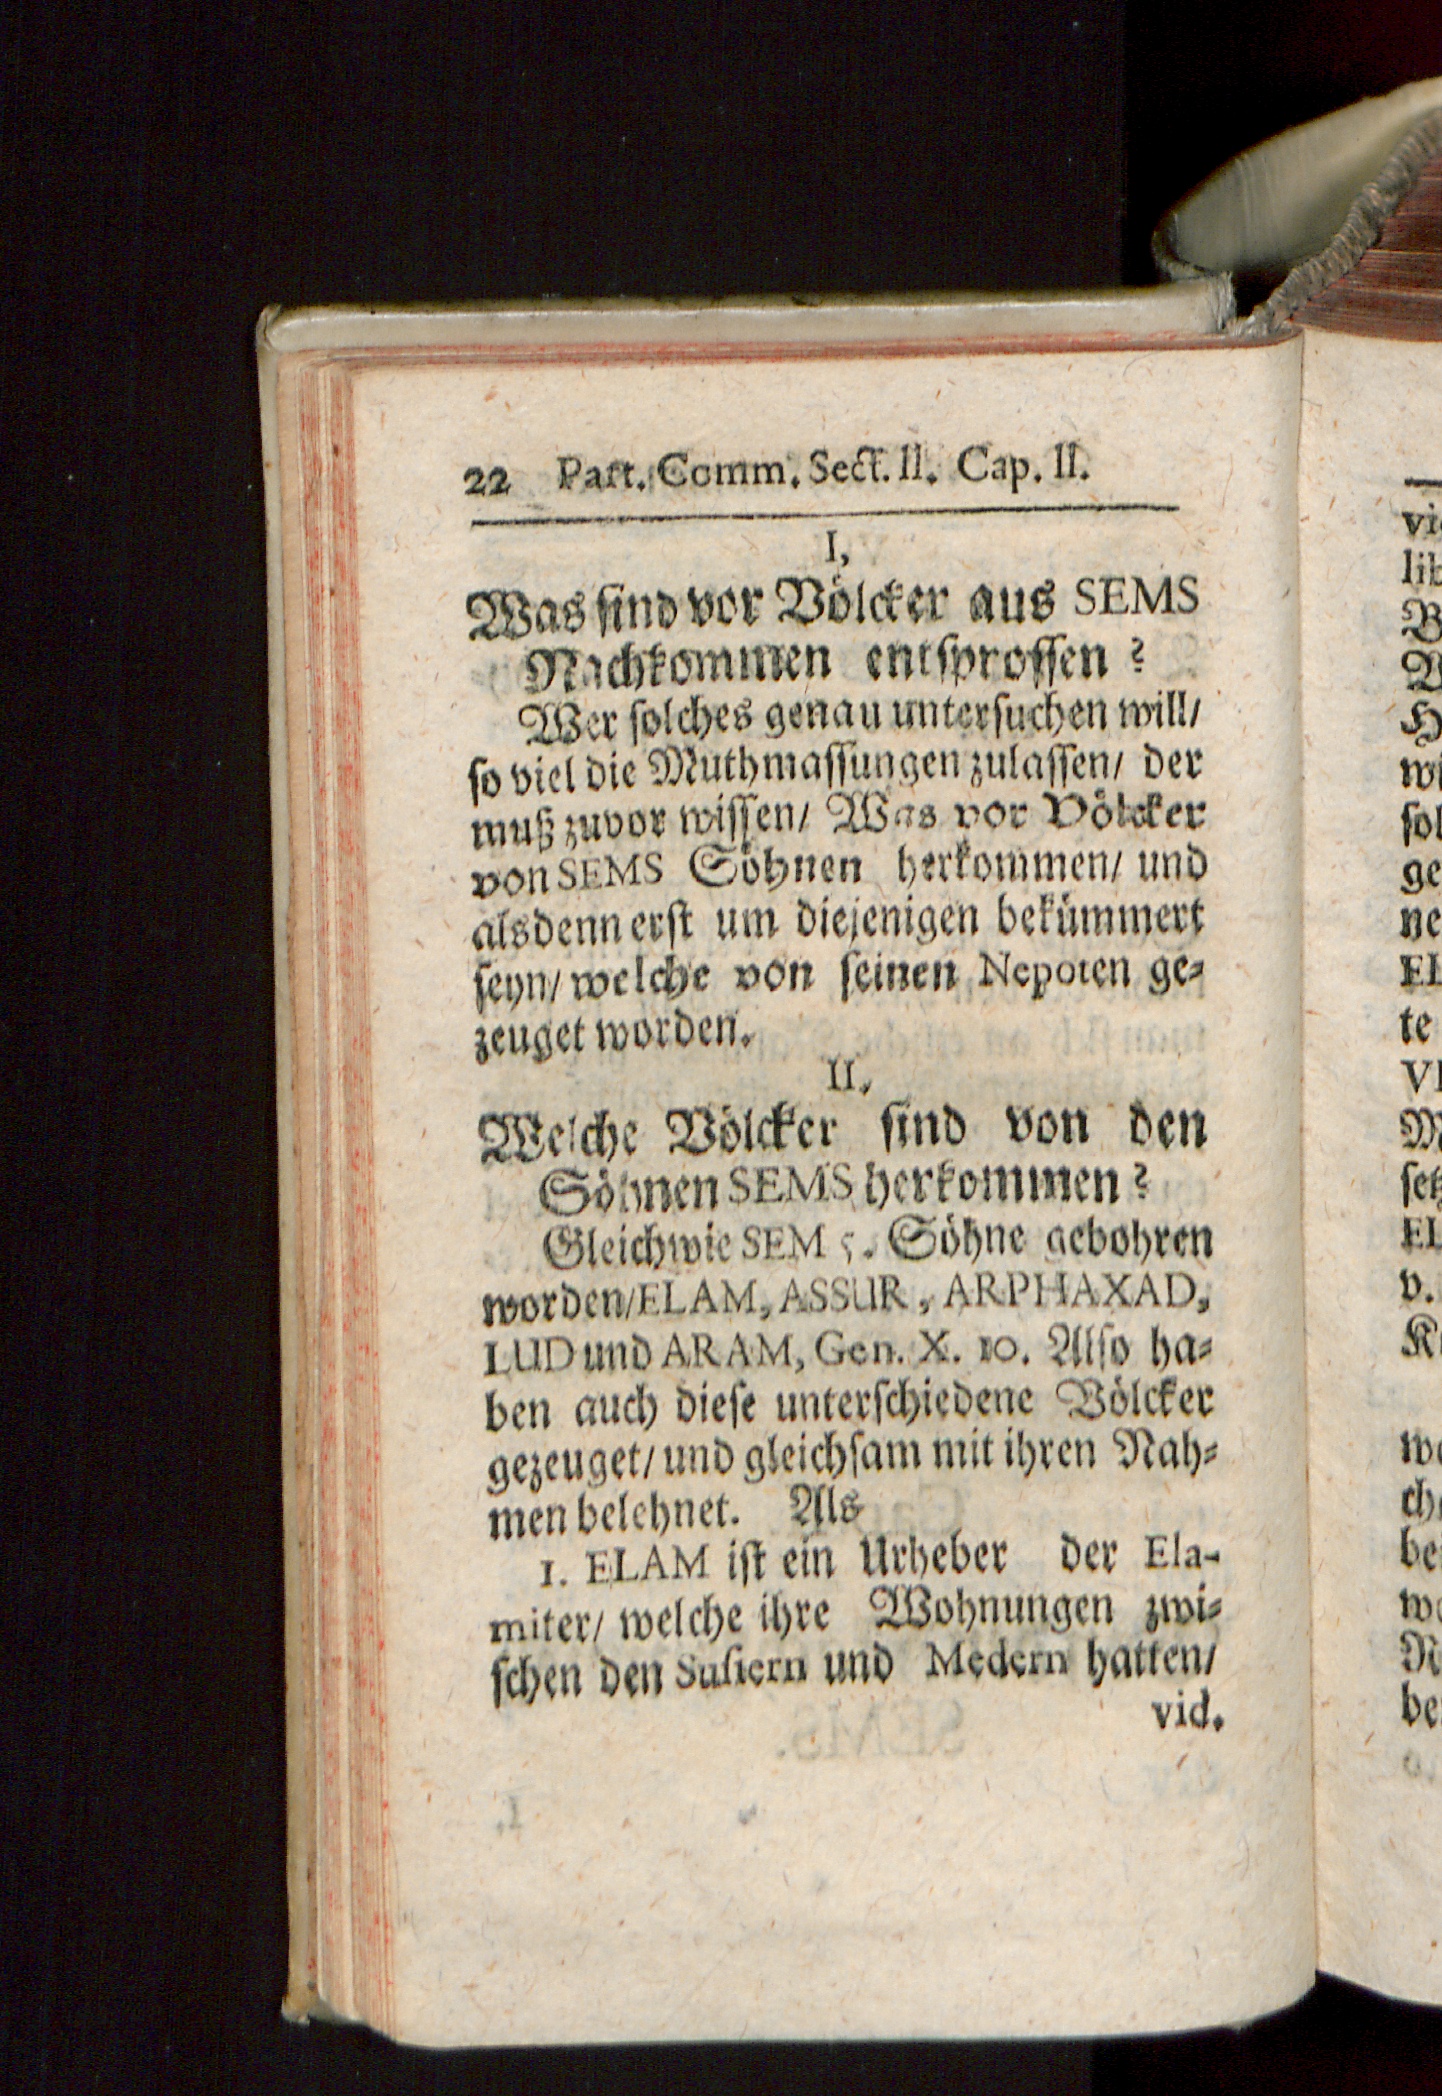 22 Part. Comm. Sect. II. Cap. II.
I,
Was sind vor Völcker aus SEMS
Nachkommen entsprossen?
Wer solches genau untersuchen will/
so viel die Muthmassungen zulassen/ der
muß zuvor wissen/ Was vor Völcker
von SEMS Söhnen herkommen/ und
alsdenn erst um diejenigen bekümmert
seyn/ welche von seinen Nepoten ge-
zeuget worden.
II.
Welche Völcker sind von den
Söhnen SEMS herkommen?
Gleichwie SEM 5. Söhne gebohren
worden/ELAM, ASSUR, ARPHAXAD,
LUD und ARAM, Gen. X. 10. Also ha-
ben auch diese unterschiedene Völcker
gezeuget/ und gleichsam mit ihren Nah-
men belehnet. Als
1. ELAM ist ein Urheber der Ela-
miter/ welche ihre Wohnungen zwi-
schen den Susiern und Medern hatten/
vid.